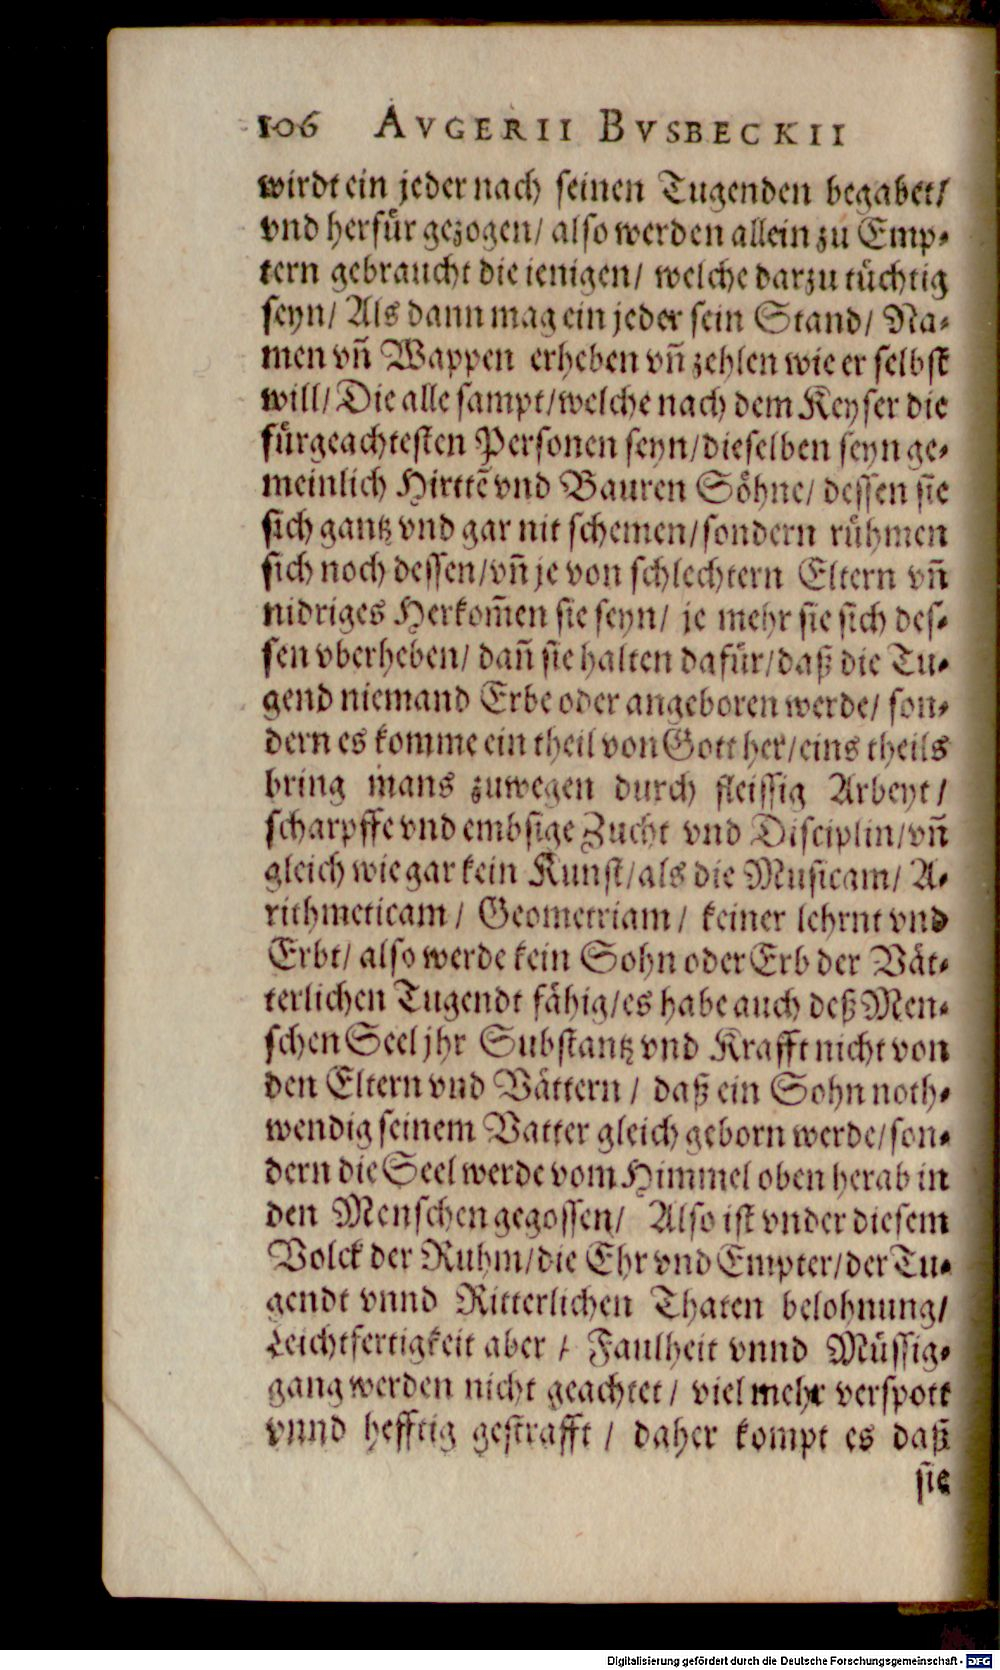 106 AVGERII BVSBECKII
wirdt ein jeder nach seinen Tugenden begabet/
vnd herfür gezogen/ also werden allein zu Emp-
tern gebraucht die ienigen/ welche darzu tüchtig
seyn/ Als dann mag ein jeder sein Stand/ Na-
men vñ Wappen erheben vñ zehlen wie er selbst
will/ Die alle sampt/ welche nach dem Keyser die
fürgeachtesten Personen seyn/ dieselben seyn ge-
meinlich Hirttẽ vnd Bauren Söhne/ dessen sie
sich gantz vnd gar nit schemen/ sondern rühmen
sich noch dessen/ vñ je von schlechtern Eltern vñ
nidriges Herkom̃en sie seyn/ je mehr sie sich des-
sen vberheben/ dañ sie halten dafür/ daß die Tu-
gend niemand Erbe oder angeboren werde/ son-
dern es komme ein theil von Gott her/ eins theils
bring mans zuwegen durch fleissig Arbeyt/
scharpffe vnd embsige Zucht vnd Disciplin/ vñ
gleich wie gar kein Kunst/ als die Musicam/ A-
rithmeticam/ Geometriam/ keiner lehrnt vnd
Erbt/ also werde kein Sohn oder Erb der Vät-
terlichen Tugendt fähig/ es habe auch deß Men-
schen Seel jhr Substantz vnd Krafft nicht von
den Eltern vnd Vättern/ daß ein Sohn noth-
wendig seinem Vatter gleich geborn werde/ son-
dern die Seel werde vom Himmel oben herab in
den Menschen gegossen/ Also ist vnder diesem
Volck der Ruhm/ die Ehr vnd Empter/ der Tu-
gendt vnnd Ritterlichen Thaten belohnung/
Leichtfertigkeit aber/ Faulheit vnnd Müssig-
gang werden nicht geachtet/ viel mehr verspott
vnnd hefftig gestrafft/ daher kompt es daß
sie
Digitalisierung gefördert durch die Deutsche Forschungsgemeinschaft - DFG